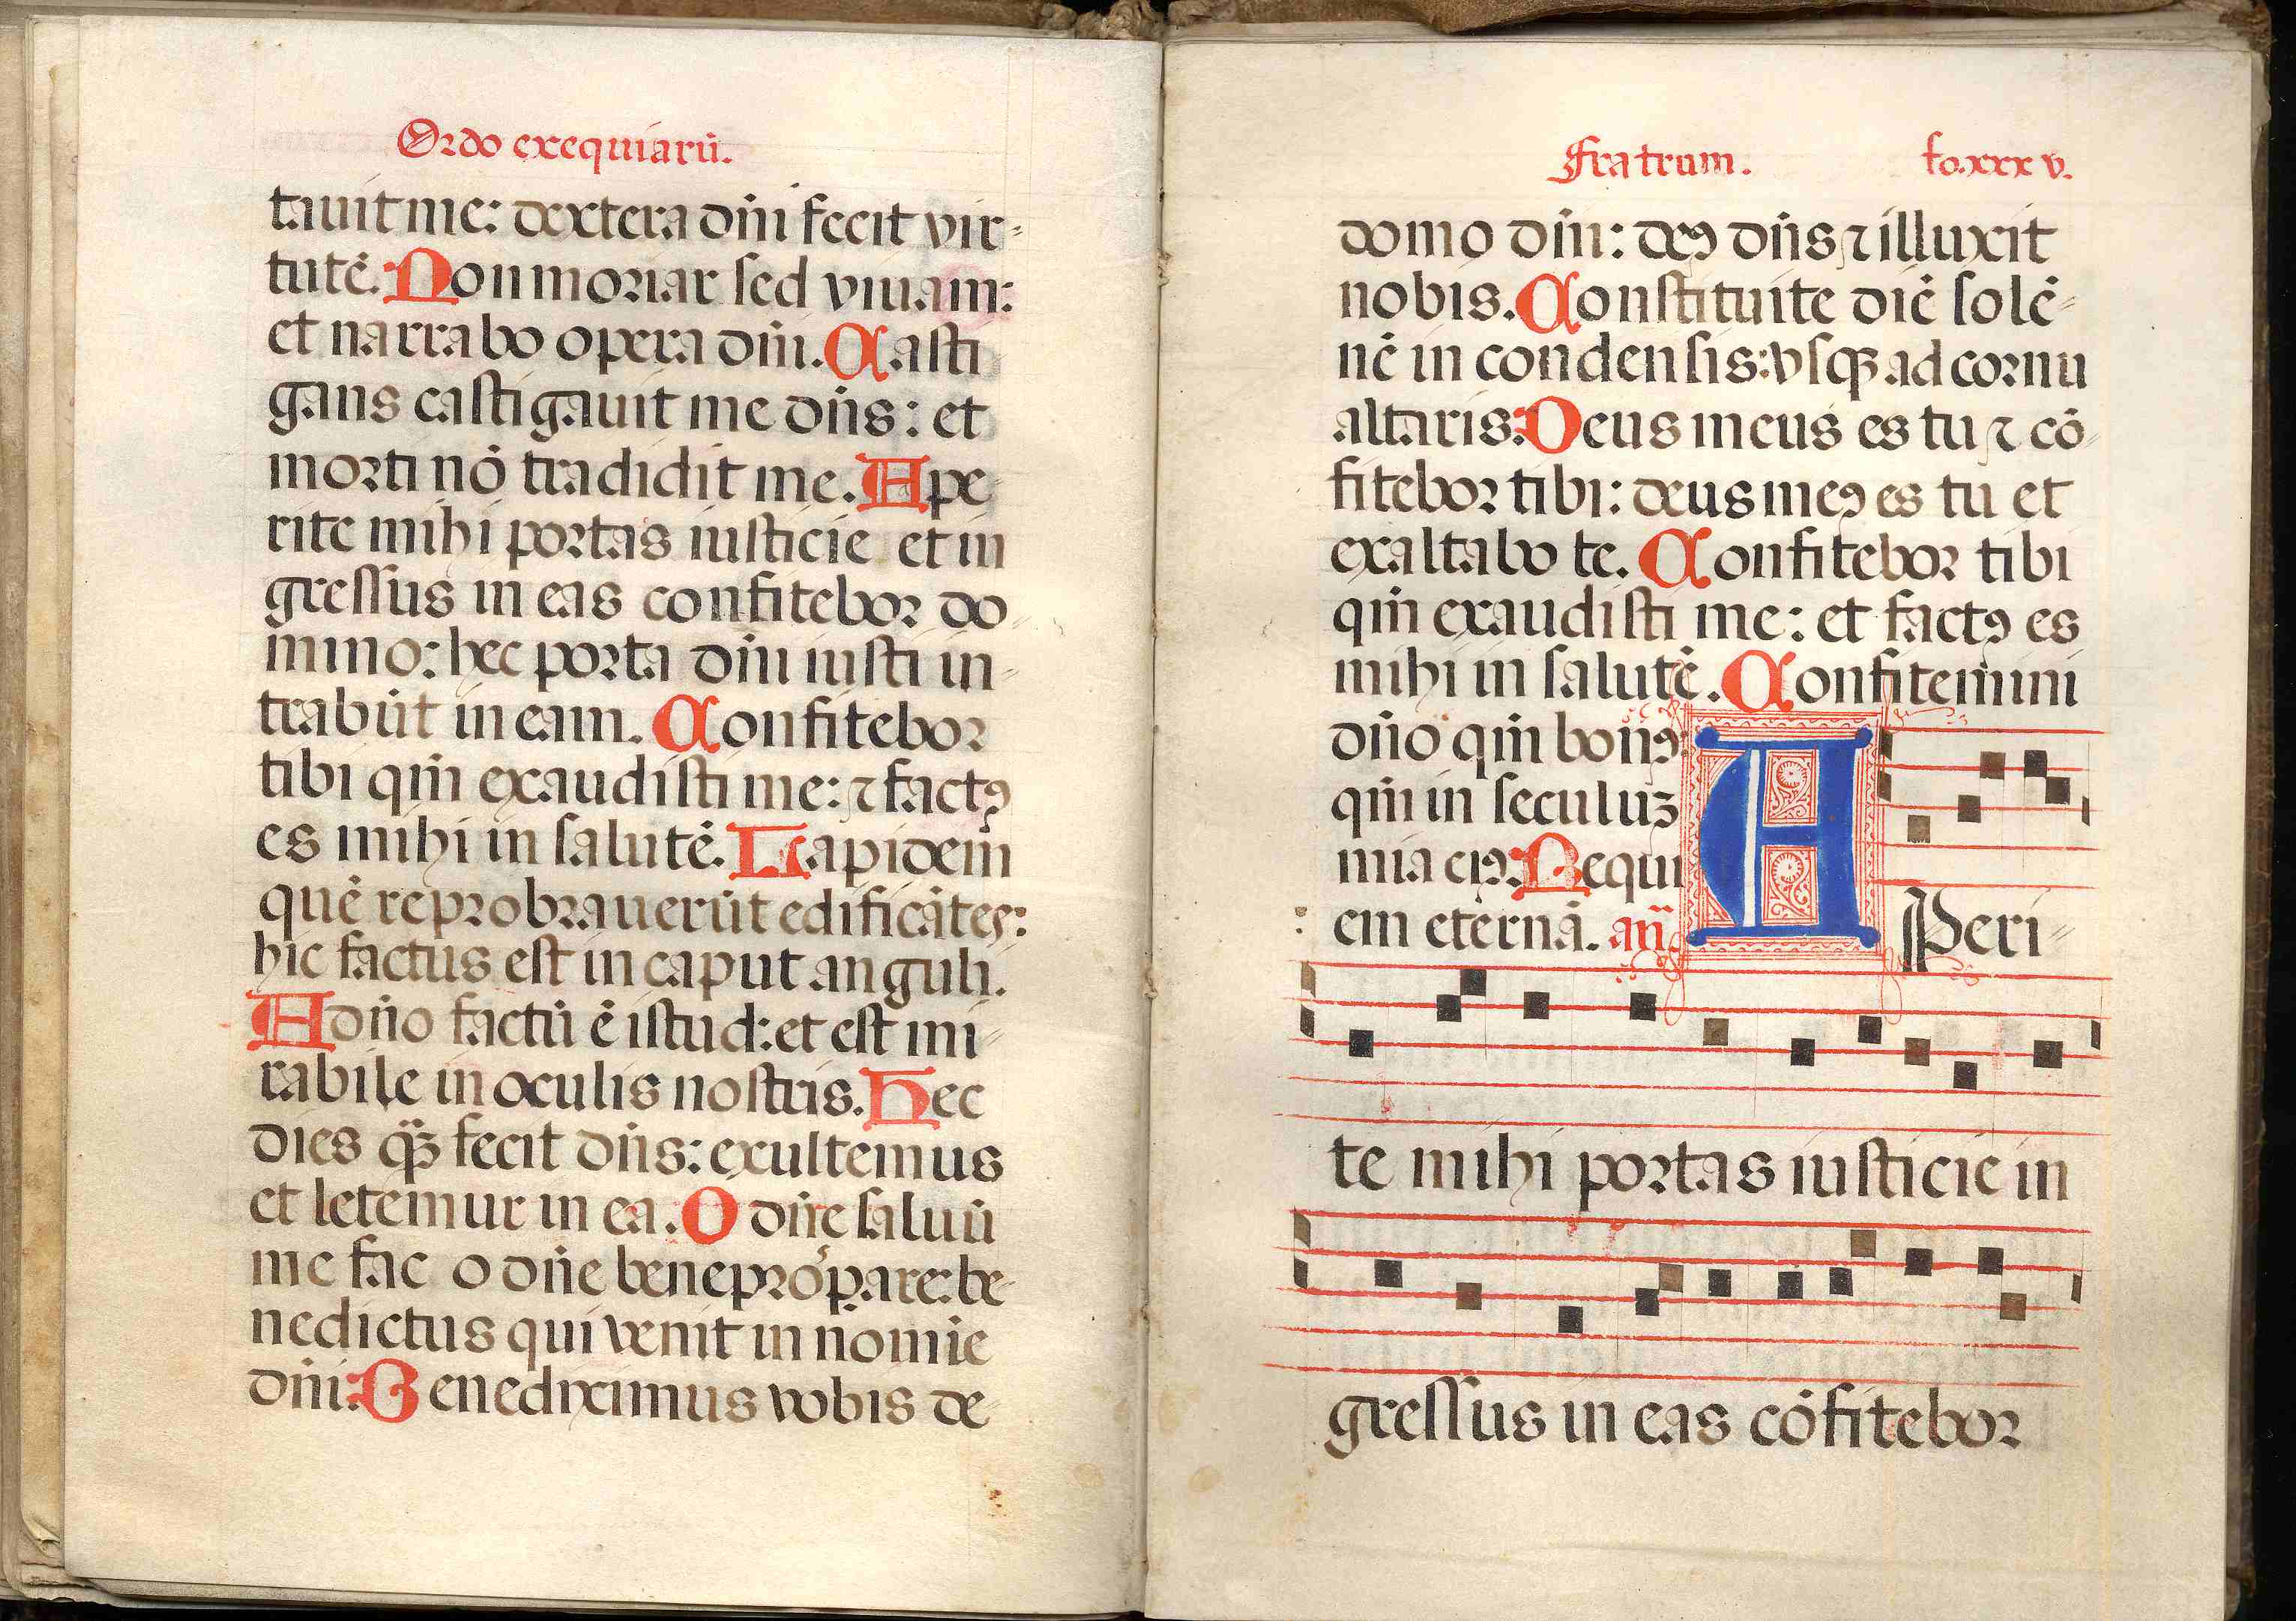 Ordo exequiarū.
tauit me: dextera dñi fecit vir-
tutē. Non moriar sed viuam:
et narrabo opera dñi. Casti
gans castigauit me dñs: et
morti nō tradidit me. Ape
rite mihi portas iusticie et in
gressus in eas confitebor do-
mino: hec porta dñi iusti in-
trabūt in eam. Confitebor
tibi qm̄ exaudisti me: ⁊ factꝯ
es mihi in salutē. Lapidem
quē reprobrauerūt edificātes:
hic factus est in caput anguli.
A dño factū ē istud: et est mi-
rabile in oculis nostris. Hec
dies quā fecit dñs: exultemus
et letemur in ea. O dñe saluū
me fac o dñe bene ꝓspare: be-
nedictus qui venit in nomīe
dñi: Benediximus vobis de
Fratrum. fo. xxx v.
domo dñi: deꝯ dñs ⁊ illuxit
nobis. Constituite diē solē-
nē in condensis: vsqꝫ ad cornu
altaris: Deus meus es tu ⁊ cō-
fitebor tibi: deus meꝯ es tu et
exaltabo te. Confitebor tibi
qm̄ exaudisti me: et factꝯ es
mihi in salutē. Confitemini
dño qm̄ bonꝯ:
qm̄ in seculuꝫ
mia eiꝯ. Requi
em eternā. añ.
APeri-
te mihi portas iusticie in
gressus in eas cōfitebor